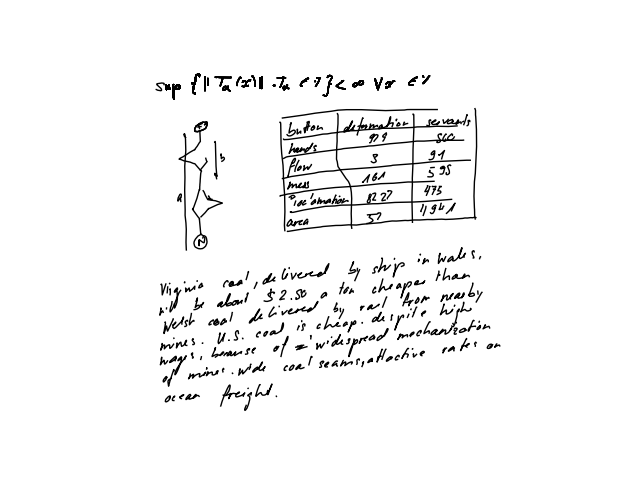 sup { || T_a(x) || : T_a ∈ } < ∞ ∀x ∈
a
b
N
button deformation servants
hands 979 560
flow 3 91
mess 161 595
8227 475
area 57 4941
Virginia coal, delivered by ship in Wales,
will be about $2.50 a ton cheaper than
Welsh coal delivered by rail from nearby
mines. U.S. coal is cheap. despite high
wages, because of widespread mechanization
of mines. wide coal seams, attractive rates on
ocean freight.